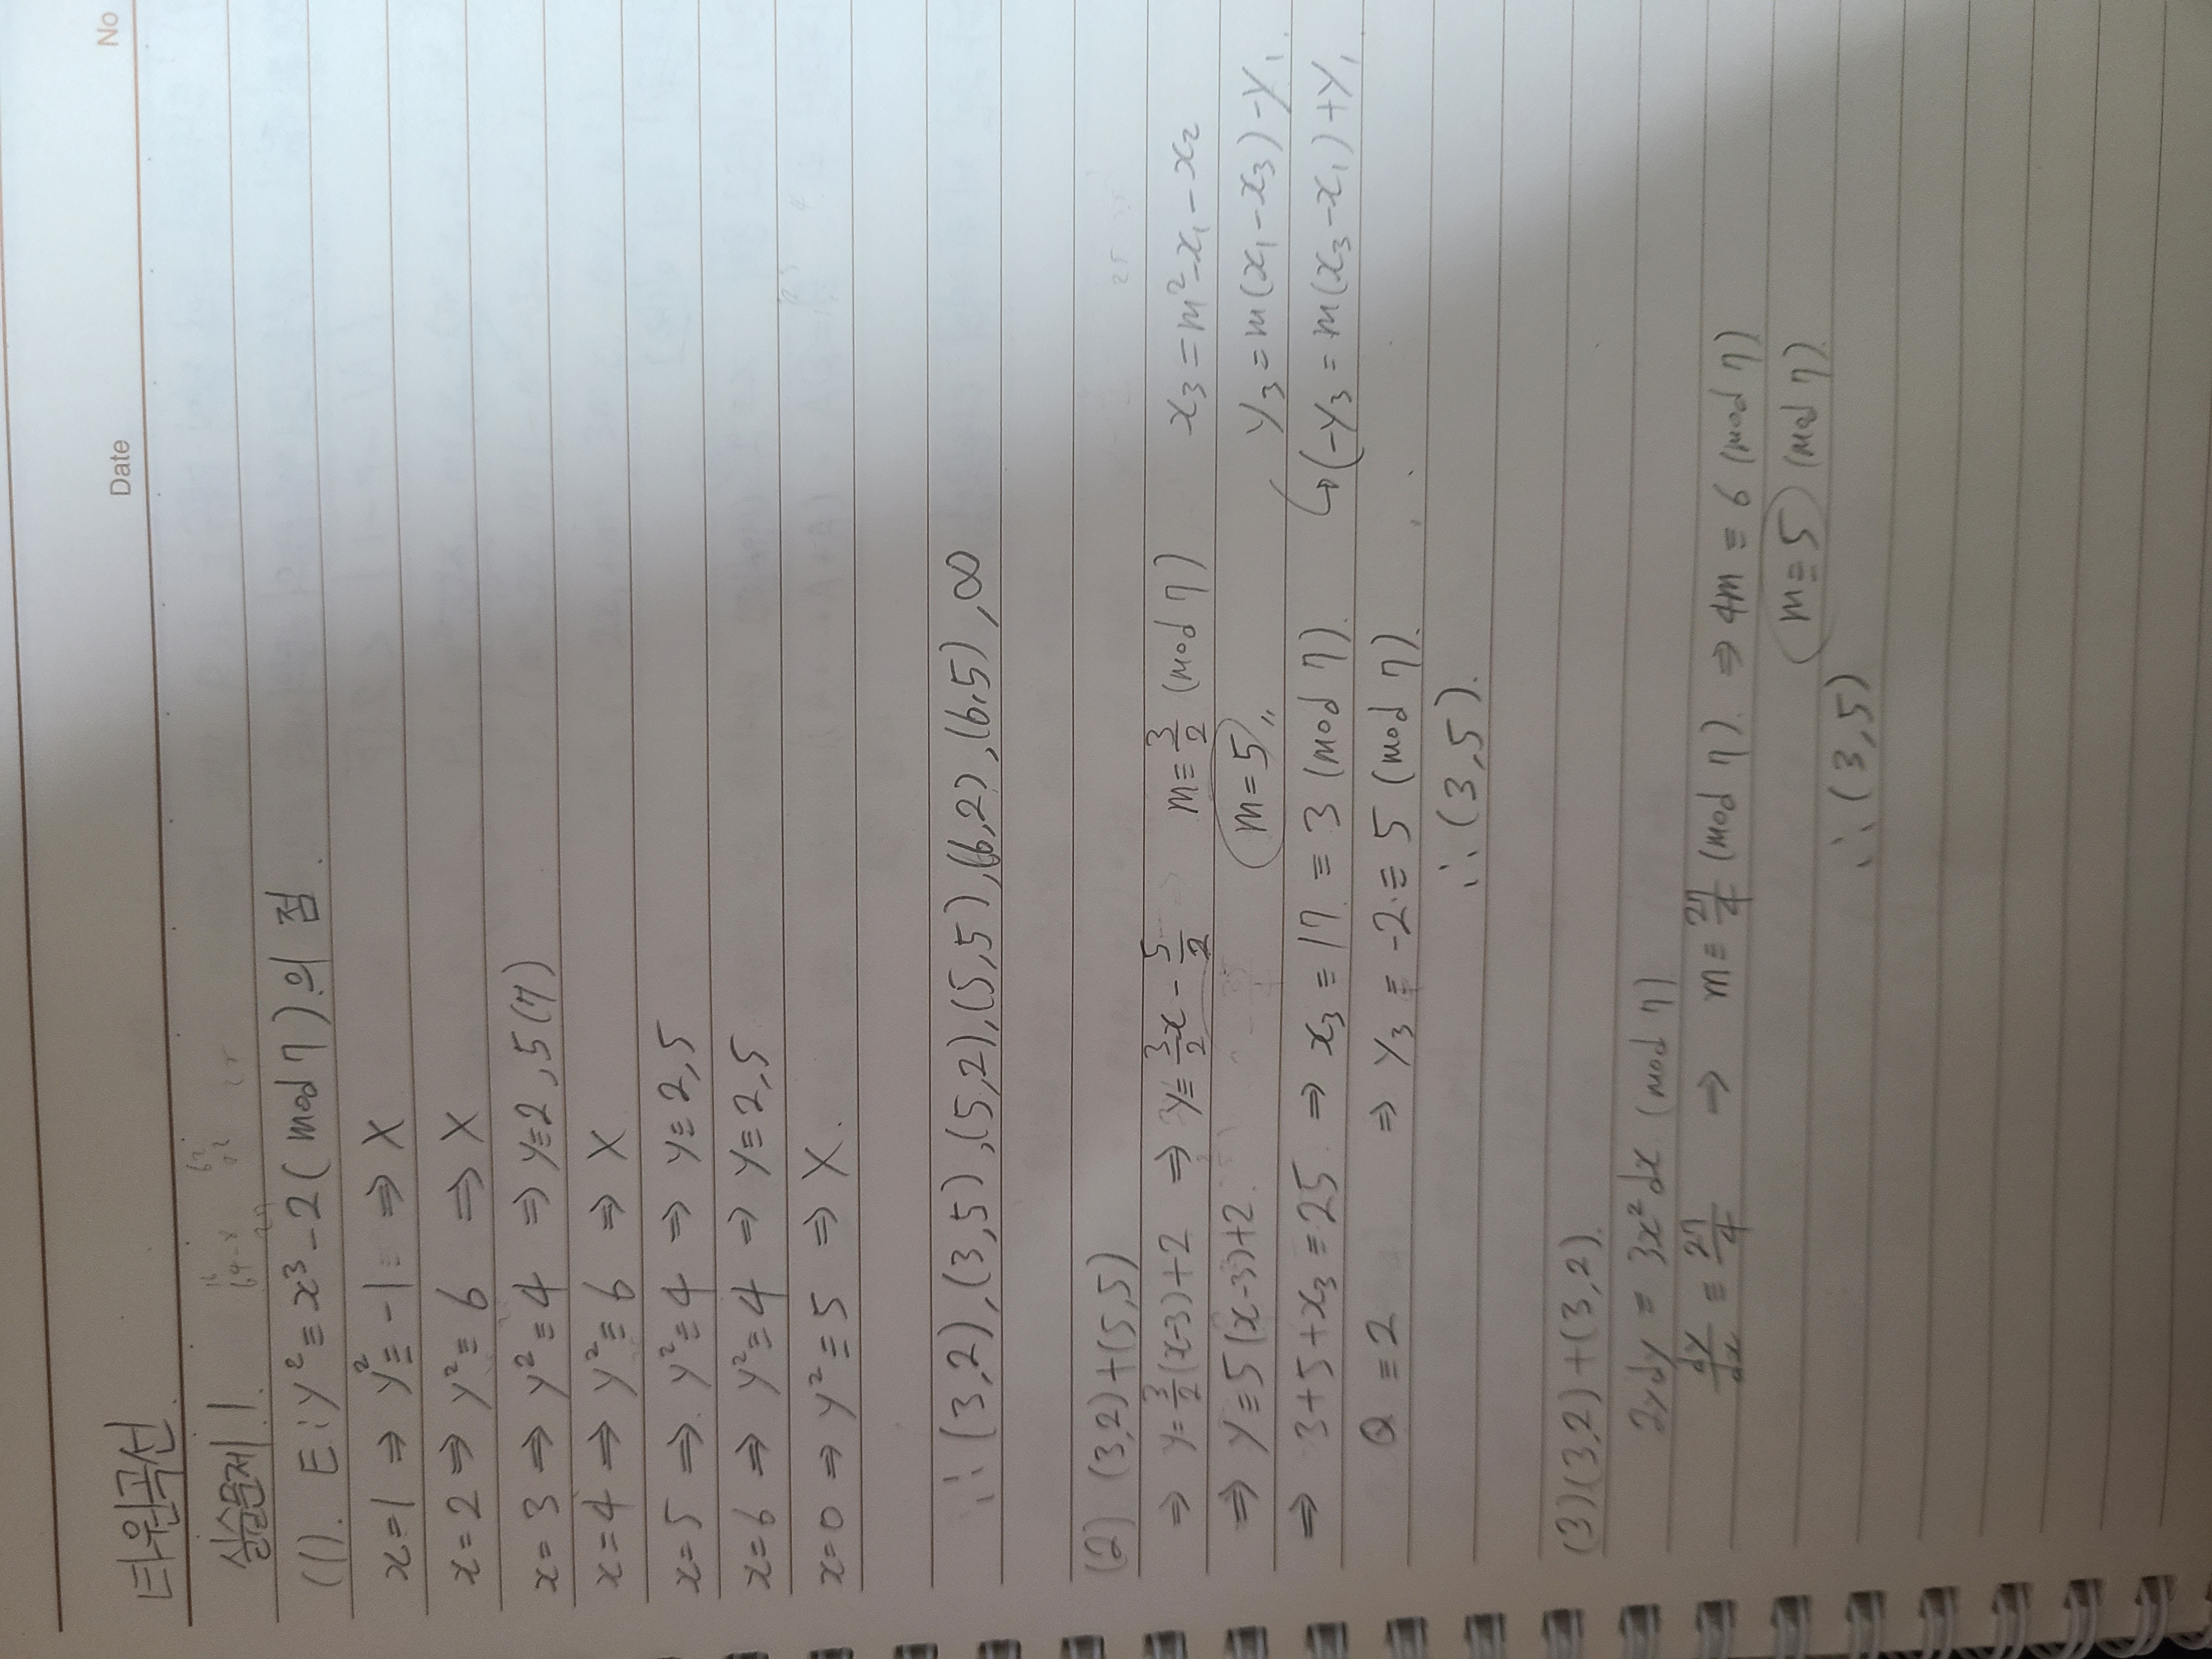 Date No
타원곡선.
실습문제 1.
(1). E: y² ≡ x³ - 2 ( mod 7 )의 점.
x=1 ⇒ y² ≡ -1 ⇒ X
x=2 ⇒ y² ≡ 6 ⇒ X
x=3 ⇒ y² ≡ 4 ⇒ y≡2, 5(7)
x=4 ⇒ y² ≡ 6 ⇒ X
x=5 ⇒ y² ≡ 4 ⇒ y≡ 2,5
x=6 ⇒ y² ≡ 4 ⇒ y≡ 2,5
x=0 ⇒ y² ≡ 5 ⇒ X.
∴ (3,2), (3,5), (5,2), (5,5), (6,2), (6,5), ∞
(2) (3,2)+(5,5)
⇒ y= 3/2 (x-3)+2 ⇒ y≡ 3/2 x - 5/2 m ≡ 3/2 (mod 7) x₃ = m²-x₁-x₂
⇒ y≡5(x-3)+2. m=5,, y₃ = m(x₁-x₃)-y₁.
⇒ 3+5+x₃ ≡ 25 ⇒ x₃ ≡ 17 ≡ 3 (mod 7). ↳(-y₃ = m(x₃-x₁)+y₁
Q ≡ 2 ⇒ y₃ ≡ -2 ≡ 5 (mod 7).
∴ (3,5).
(3) (3,2)+(3,2).
2ydy ≡ 3x²dx (mod 7)
dy/dx ≡ 27/4 ⇒ m≡ 27/4 (mod 7). ⇒ 4m ≡ 6 (mod 7)
m≡5 (mod 7).
∴ (3,5)